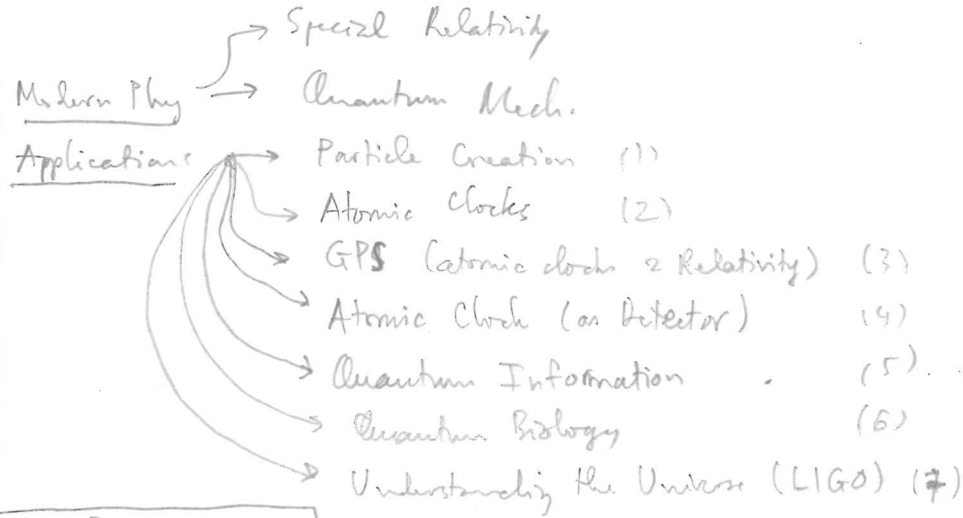 Special Relativity
Modern Phy → Quantum Mech.
Applications → Particle Creation (1)
Atomic Clocks (2)
GPS (atomic clocks & Relativity) (3)
Atomic Clock (as Detector) (4)
Quantum Information (5).
Quantum Biology (6)
Understanding the Universe (LIGO) (7)